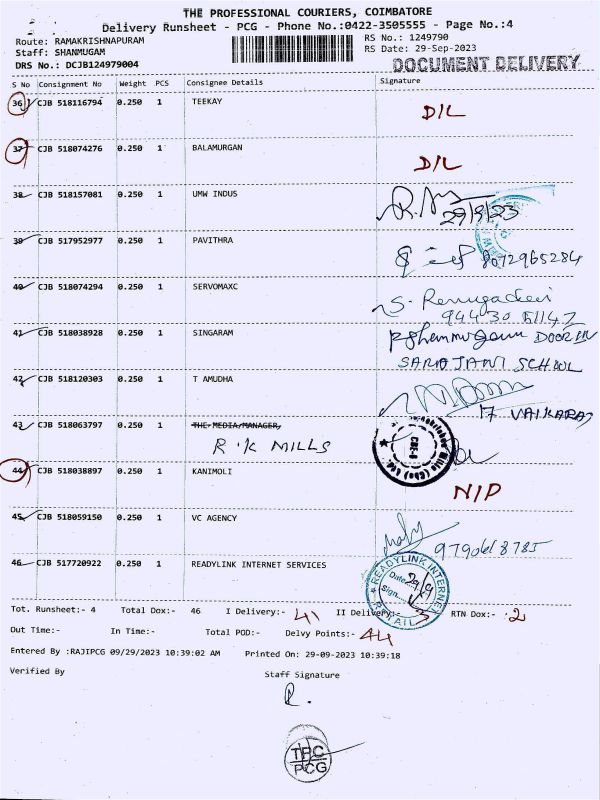 THE PROFESSIONAL COURIERS, COIMBATORE
Delivery Runsheet - PCG - Phone No.:0422-3505555 - Page No.:4
Route: RAMAKRISHNAPURAM
Staff: SHANMUGAM
DRS No.: DCJB124979004
RS No.: 1249790
RS Date: 29-Sep-2023
DOCUMENT DELIVERY
S No Consignment No Weight PCS Consignee Details Signature
36 CJB 518116794 0.250 1 TEEKAY D/L
37 CJB 518074276 0.250 1 BALAMURGAN D/L
38 CJB 518157081 0.250 1 UMW INDUS 29/9/23
39 CJB 517952977 0.250 1 PAVITHRA 8072965284
40 CJB 518074294 0.250 1 SERVOMAXC S. Renugadevi
94430 51142
41 CJB 518038928 0.250 1 SINGARAM
SAROJANI SCHOOL
42 CJB 518120303 0.250 1 T AMUDHA
43 CJB 518063797 0.250 1 THE MEDIA/MANAGER,
R.K MILLS
44 CJB 518038897 0.250 1 KANIMOLI N/D
45 CJB 518059150 0.250 1 VC AGENCY
46 CJB 517720922 0.250 1 READYLINK INTERNET SERVICES
READYLINK INTERNET
Date
Sign
Tot. Runsheet:- 4 Total Dox:- 46 I Delivery:- 41 II Delivery:- 3 RTN Dox:- 2
Out Time:- In Time:- Total POD:- Delvy Points:- 44
Entered By :RAJIPCG 09/29/2023 10:39:02 AM Printed On: 29-09-2023 10:39:18
Verified By Staff Signature
R.
TPC
PCG